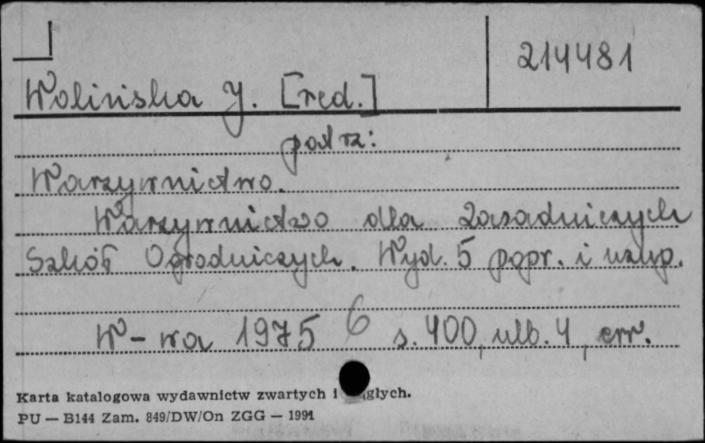 214481
Wolińska J. [red.]
patrz:
Warzywnictwo.
Warzywnictwo dla Zasadniczych
Szkół Ogrodniczych. Wyd. 5 popr. i uzup.
W-wa 1975 6 s. 400, ulb. 4, err.
Karta katalogowa wydawnictw zwartych i ciągłych.
PU — B144 Zam. 849/DW/On ZGG — 1991